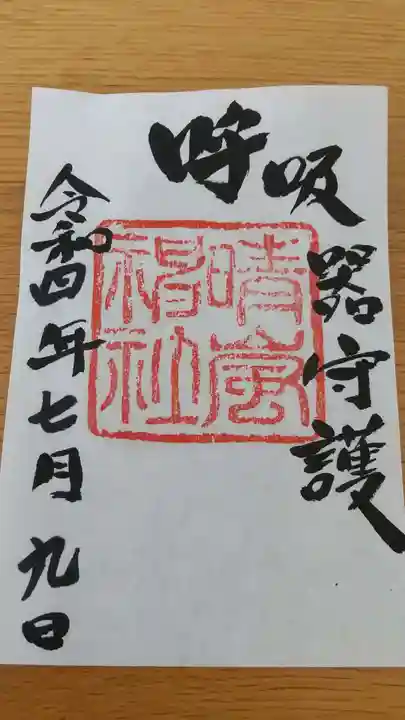 呼吸器守護
晴嵐神社
令和四年七月九日